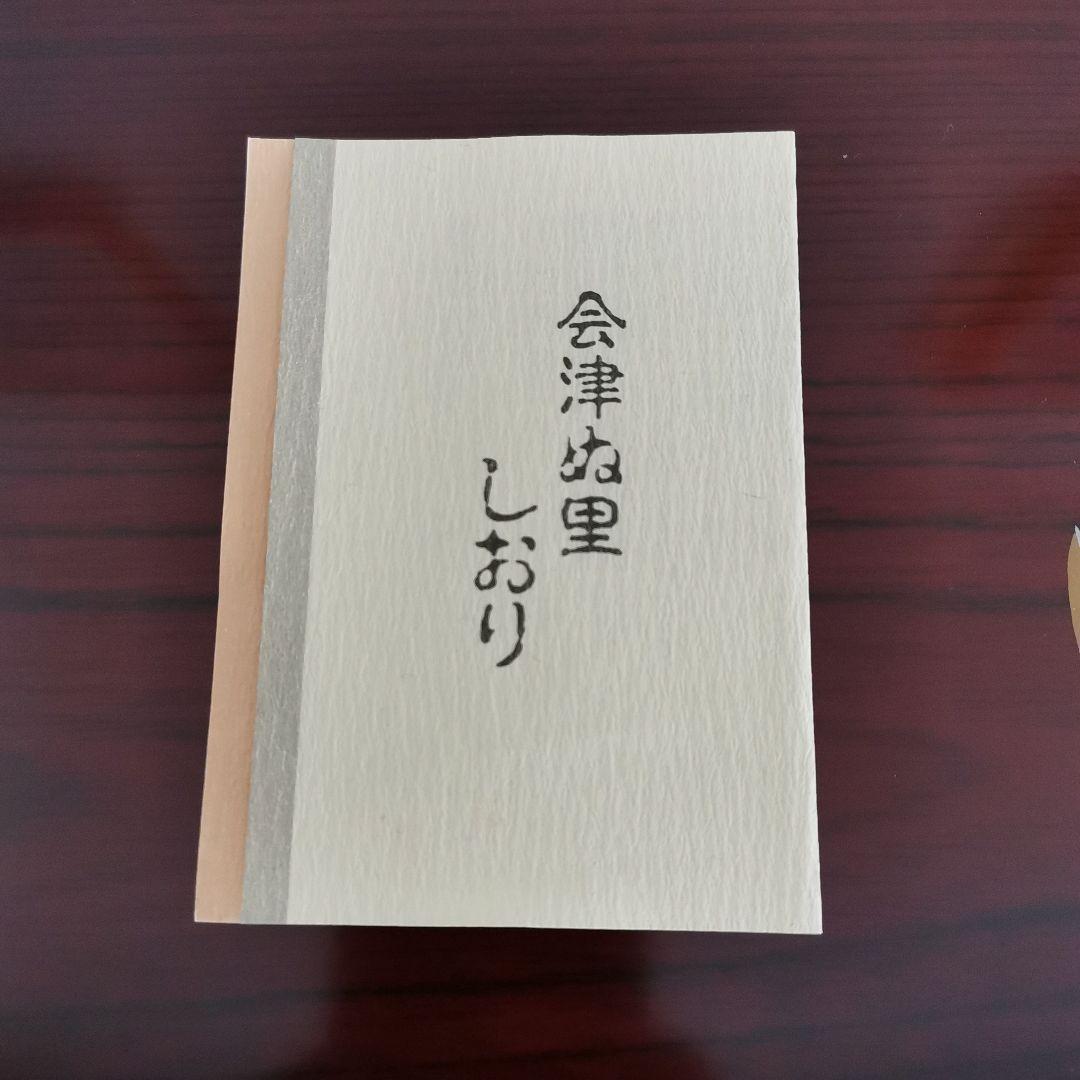 会津ぬ里
しおり